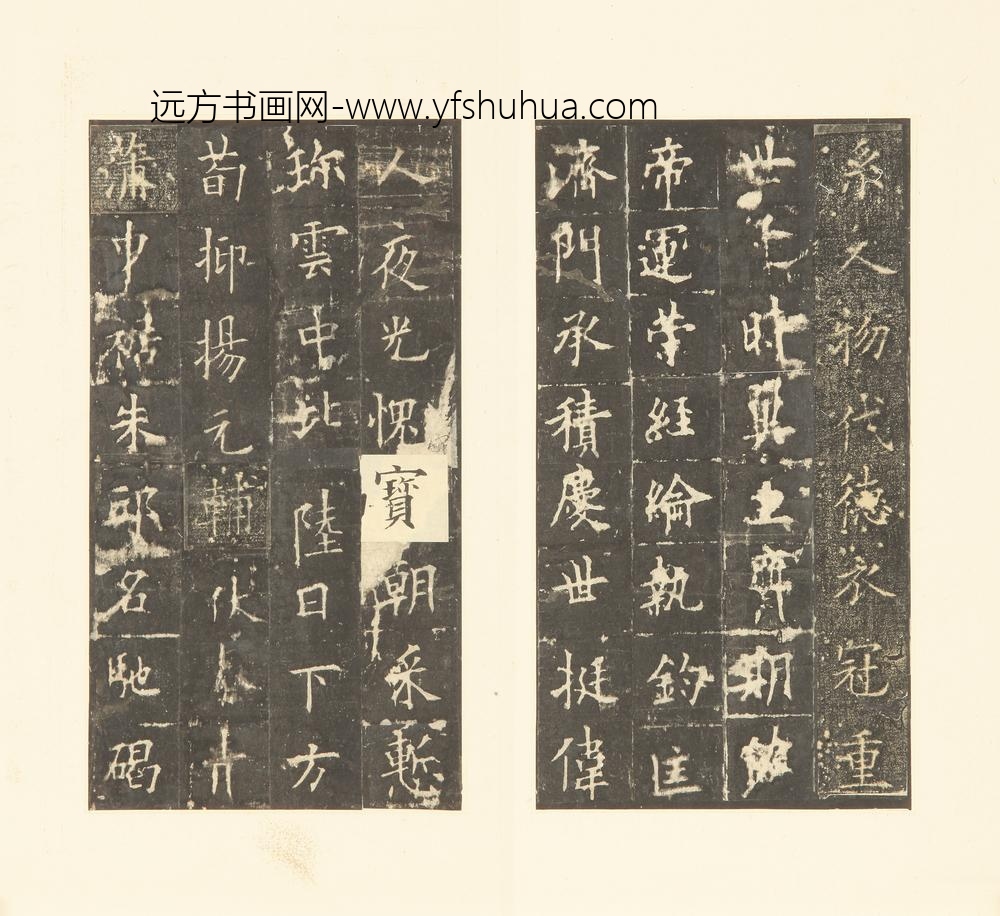 远方书画网-www.yfshuhua.com
系人物代德衣冠重
世時翼主期佐
帝運策經綸執鈞匡
濟門承積慶世挺偉
人夜光愧寶朝采慙
珎雲中比陸日下方
荀抑揚元輔伏
蒲中朱邸名馳碣